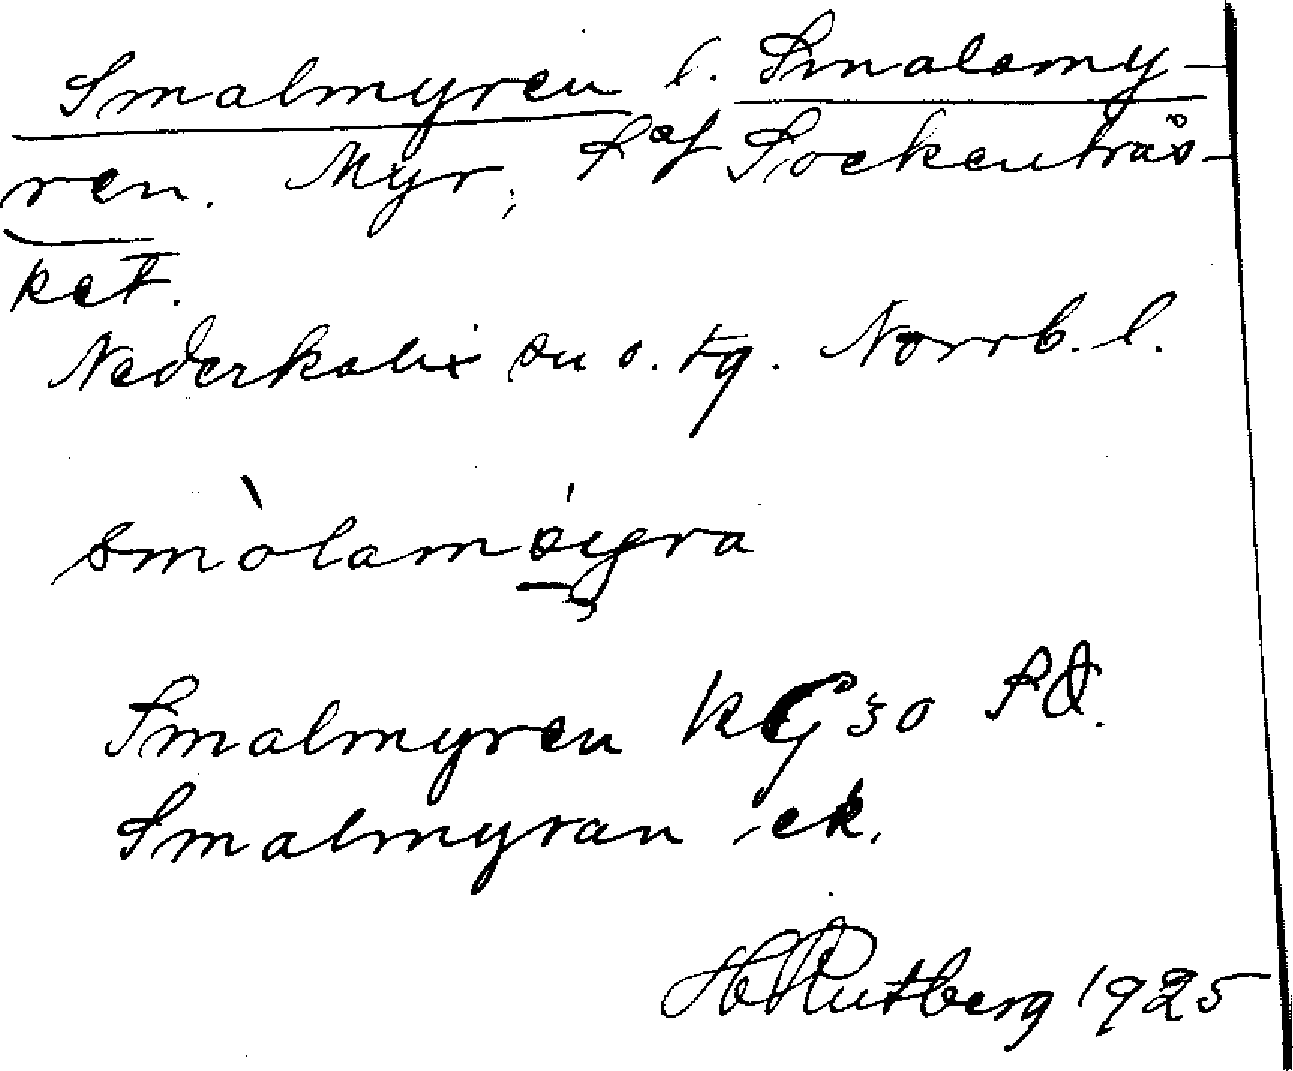 Smalmyren l. Smalamy-
ren. Myr, S af Sockenträs-
ket.
Nederkalix sn o. tg. Norrb. l.
smòlamóyra
Smalmyren KG 30 SO.
Smalmyran ek.
H Rutberg 1925